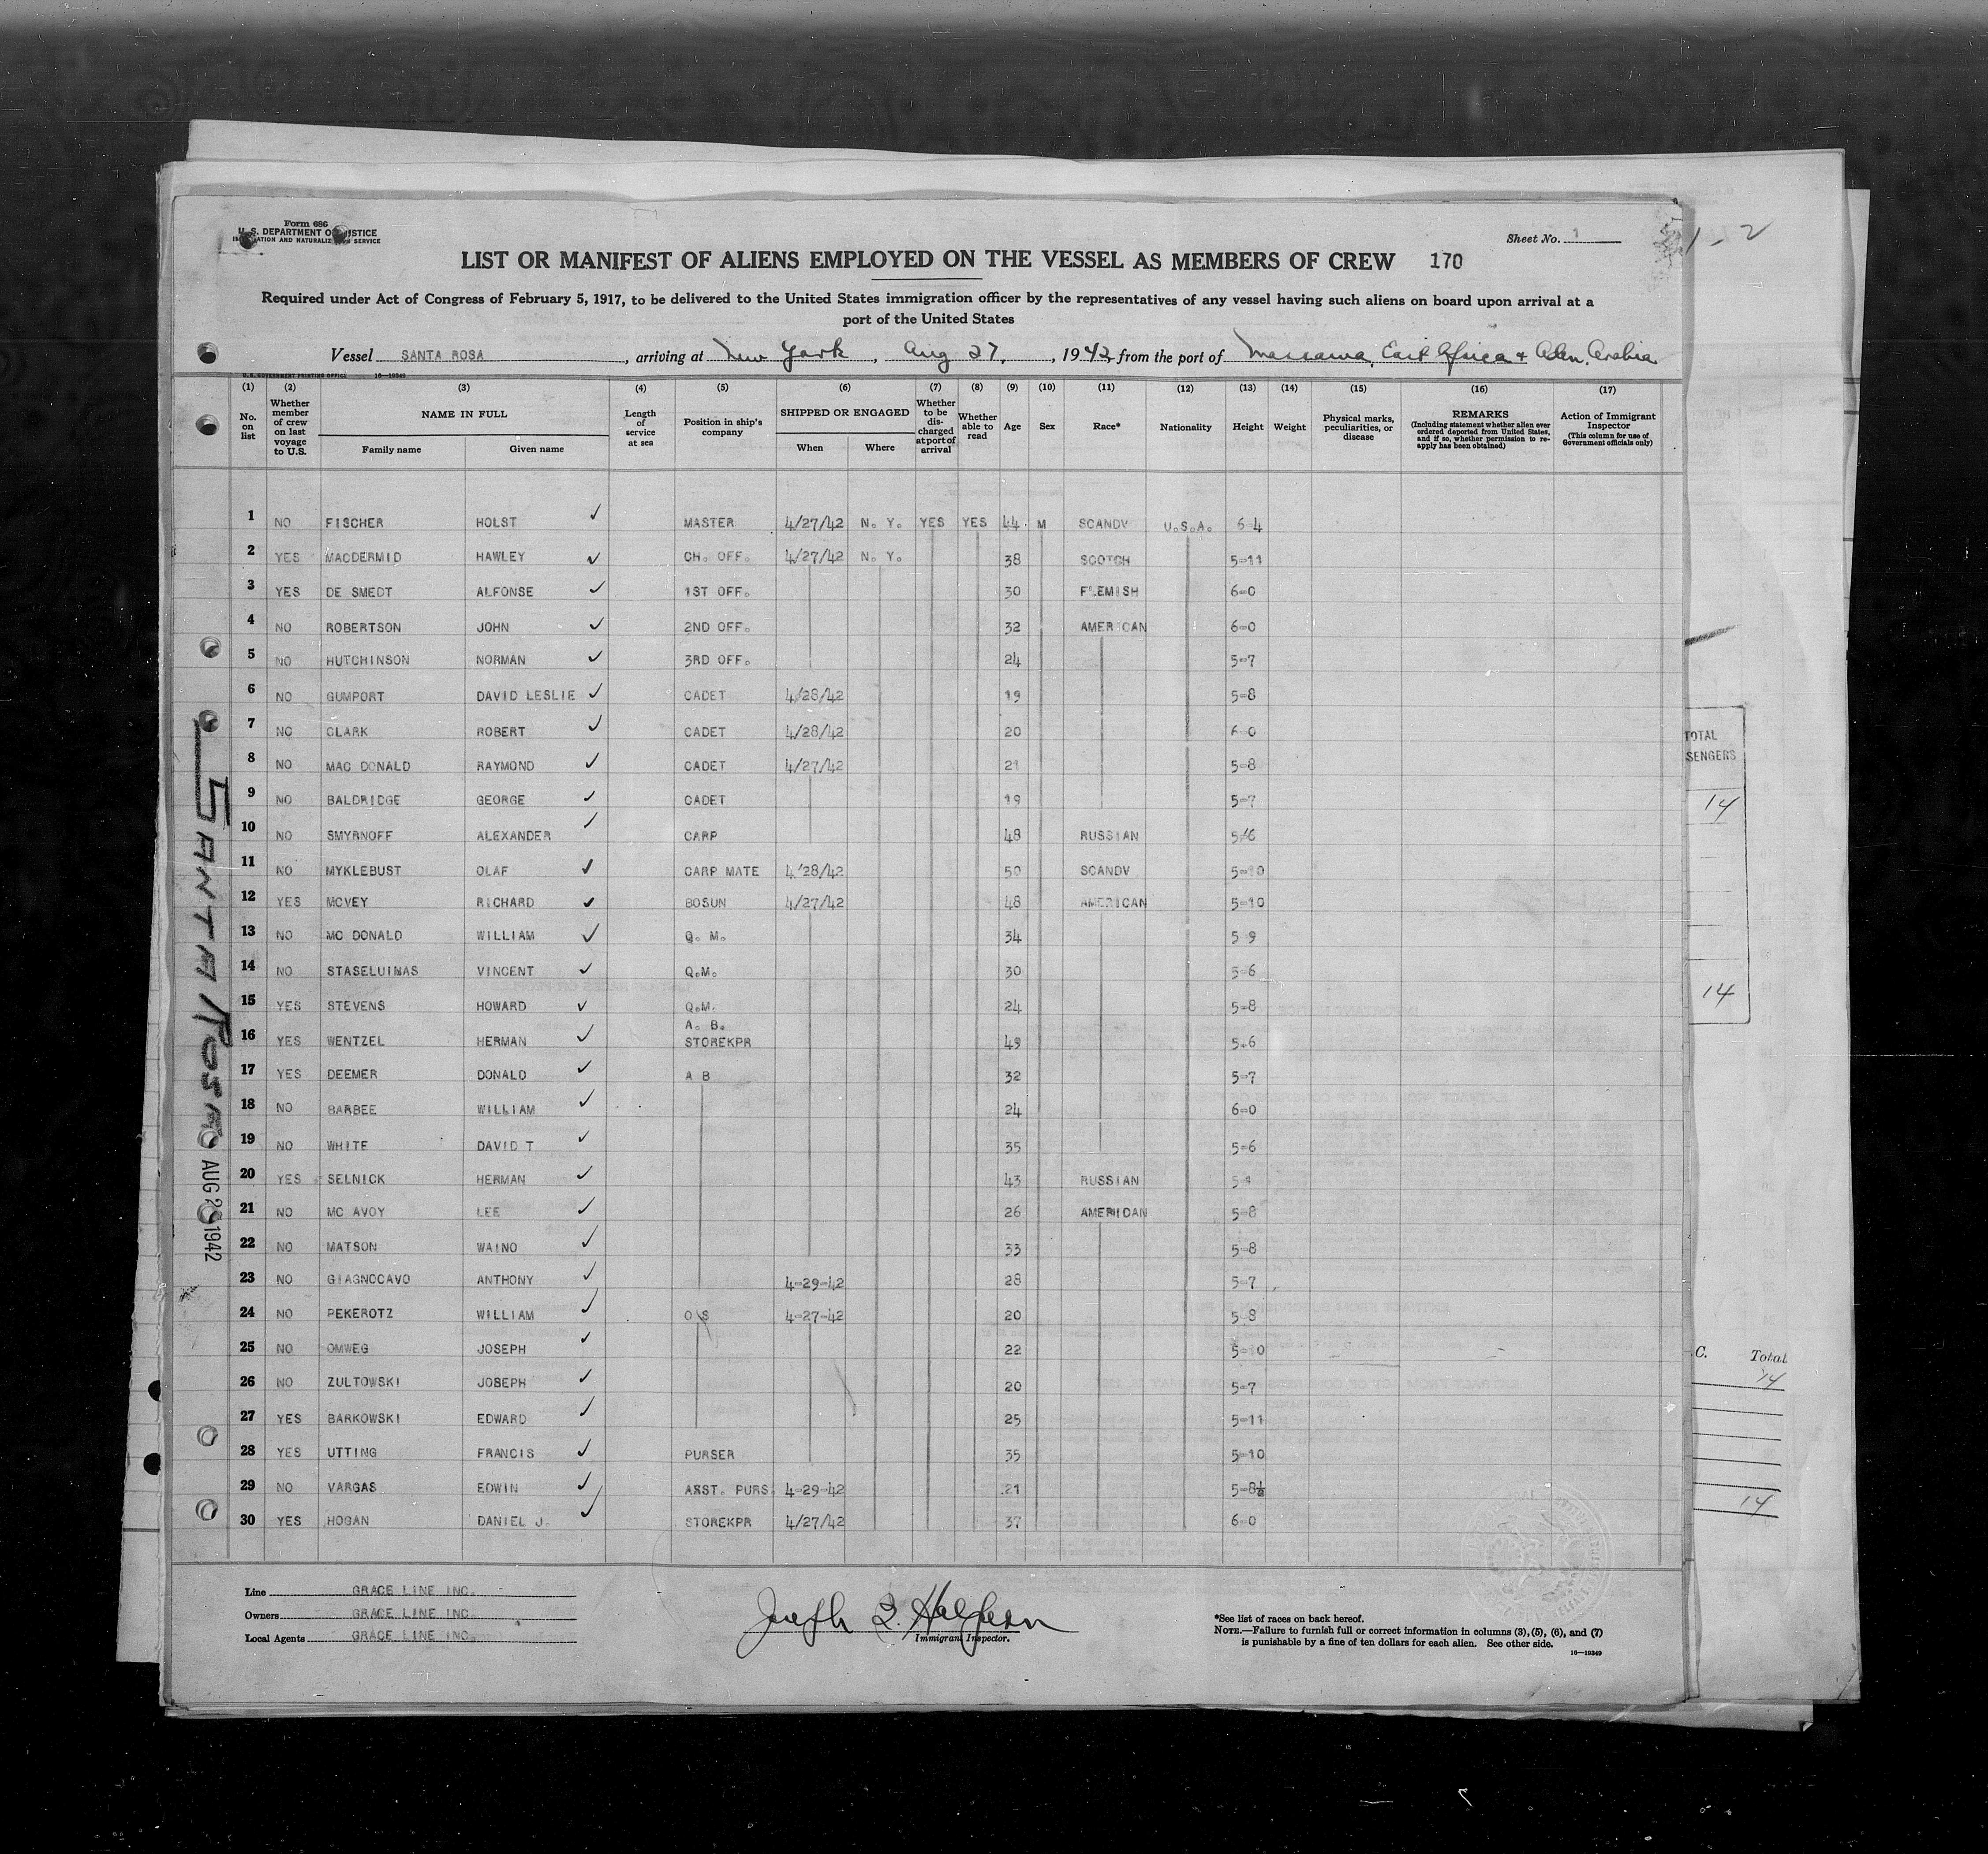 Form 686
U. S. DEPARTMENT OF JUSTICE
IMMIGRATION AND NATURALIZATION SERVICE
Sheet No. 1
1 - 2
LIST OR MANIFEST OF ALIENS EMPLOYED ON THE VESSEL AS MEMBERS OF CREW 170
Required under Act of Congress of February 5, 1917, to be delivered to the United States immigration officer by the representatives of any vessel having such aliens on board upon arrival at a
port of the United States
Vessel SANTA ROSA, arriving at New York, Aug 27, 1942, from the port of Massawa, East Africa & Aden, Arabia
U.S. GOVERNMENT PRINTING OFFICE 16—19349
(1) (2) (3) (4) (5) (6) (7) (8) (9) (10) (11) (12) (13) (14) (15) (16) (17)
No. on list
Whether member of crew on last voyage to U.S.
NAME IN FULL
Family name
Given name
Length of service at sea
Position in ship's company
SHIPPED OR ENGAGED
When
Where
Whether to be discharged at port of arrival
Whether able to read
Age
Sex
Race*
Nationality
Height
Weight
Physical marks, peculiarities, or disease
REMARKS
(Including statement whether alien ever ordered deported from United States, and if so, whether permission to reapply has been obtained)
Action of Immigrant Inspector
(This column for use of Government officials only)
1 NO FISCHER HOLST ✓ MASTER 4/27/42 N. Y. YES YES 44 M SCANDV U.S.A. 6-4
2 YES MACDERMID HAWLEY ✓ CH. OFF. 4/27/42 N. Y. 38 SCOTCH 5-11
3 YES DE SMEDT ALFONSE ✓ 1ST OFF. 30 FLEMISH 6-0
4 NO ROBERTSON JOHN ✓ 2ND OFF. 32 AMERICAN 6-0
5 NO HUTCHINSON NORMAN ✓ 3RD OFF. 24 5-7
6 NO GUMPORT DAVID LESLIE ✓ CADET 4/28/42 19 5-8
7 NO CLARK ROBERT ✓ CADET 4/28/42 20 6-0
8 NO MAC DONALD RAYMOND ✓ CADET 4/27/42 21 5-8
9 NO BALDRIDGE GEORGE ✓ CADET 19 5-7
10 NO SMYRNOFF ALEXANDER ✓ CARP 48 RUSSIAN 5-6
11 NO MYKLEBUST OLAF ✓ CARP MATE 4/28/42 50 SCANDV 5-10
12 YES MCVEY RICHARD ✓ BOSUN 4/27/42 48 AMERICAN 5-10
13 NO MC DONALD WILLIAM ✓ Q. M. 34 5-9
14 NO STASELUIMAS VINCENT ✓ Q.M. 30 5-6
15 YES STEVENS HOWARD ✓ Q.M. 24 5-8
16 YES WENTZEL HERMAN ✓ A. B. STOREKPR 49 5-6
17 YES DEEMER DONALD ✓ A B 32 5-7
18 NO BARBEE WILLIAM ✓ 24 6-0
19 NO WHITE DAVID T ✓ 35 5-6
20 YES SELNICK HERMAN ✓ 43 RUSSIAN
21 NO MC AVOY LEE ✓ 26 AMERICAN 5-8
22 NO MATSON WAINO ✓ 33 5-8
23 NO GIAGNOCAVO ANTHONY ✓ 4-29-42 28 5-7
24 NO PEKEROTZ WILLIAM ✓ O S 4-27-42 20 5-8
25 NO OMWEG JOSEPH ✓ 22 5-10
26 NO ZULTOWSKI JOSEPH ✓ 20 5-7
27 YES BARKOWSKI EDWARD ✓ 25 5-11
28 YES UTTING FRANCIS ✓ PURSER 35 5-10
29 NO VARGAS EDWIN ✓ ASST. PURS 4-29-42 21 5-8½
30 YES HOGAN DANIEL J. ✓ STOREKPR 4/27/42 37 6-0
SANTA ROSA
AUG 28 1942
TOTAL
SENGERS
14
14
C. Total
14
14
Line GRACE LINE INC.
Owners GRACE LINE INC.
Local Agents GRACE LINE INC.
Joseph Halpern
Immigrant Inspector.
*See list of races on back hereof.
NOTE.—Failure to furnish full or correct information in columns (3), (5), (6), and (7)
is punishable by a fine of ten dollars for each alien. See other side.
16—19349